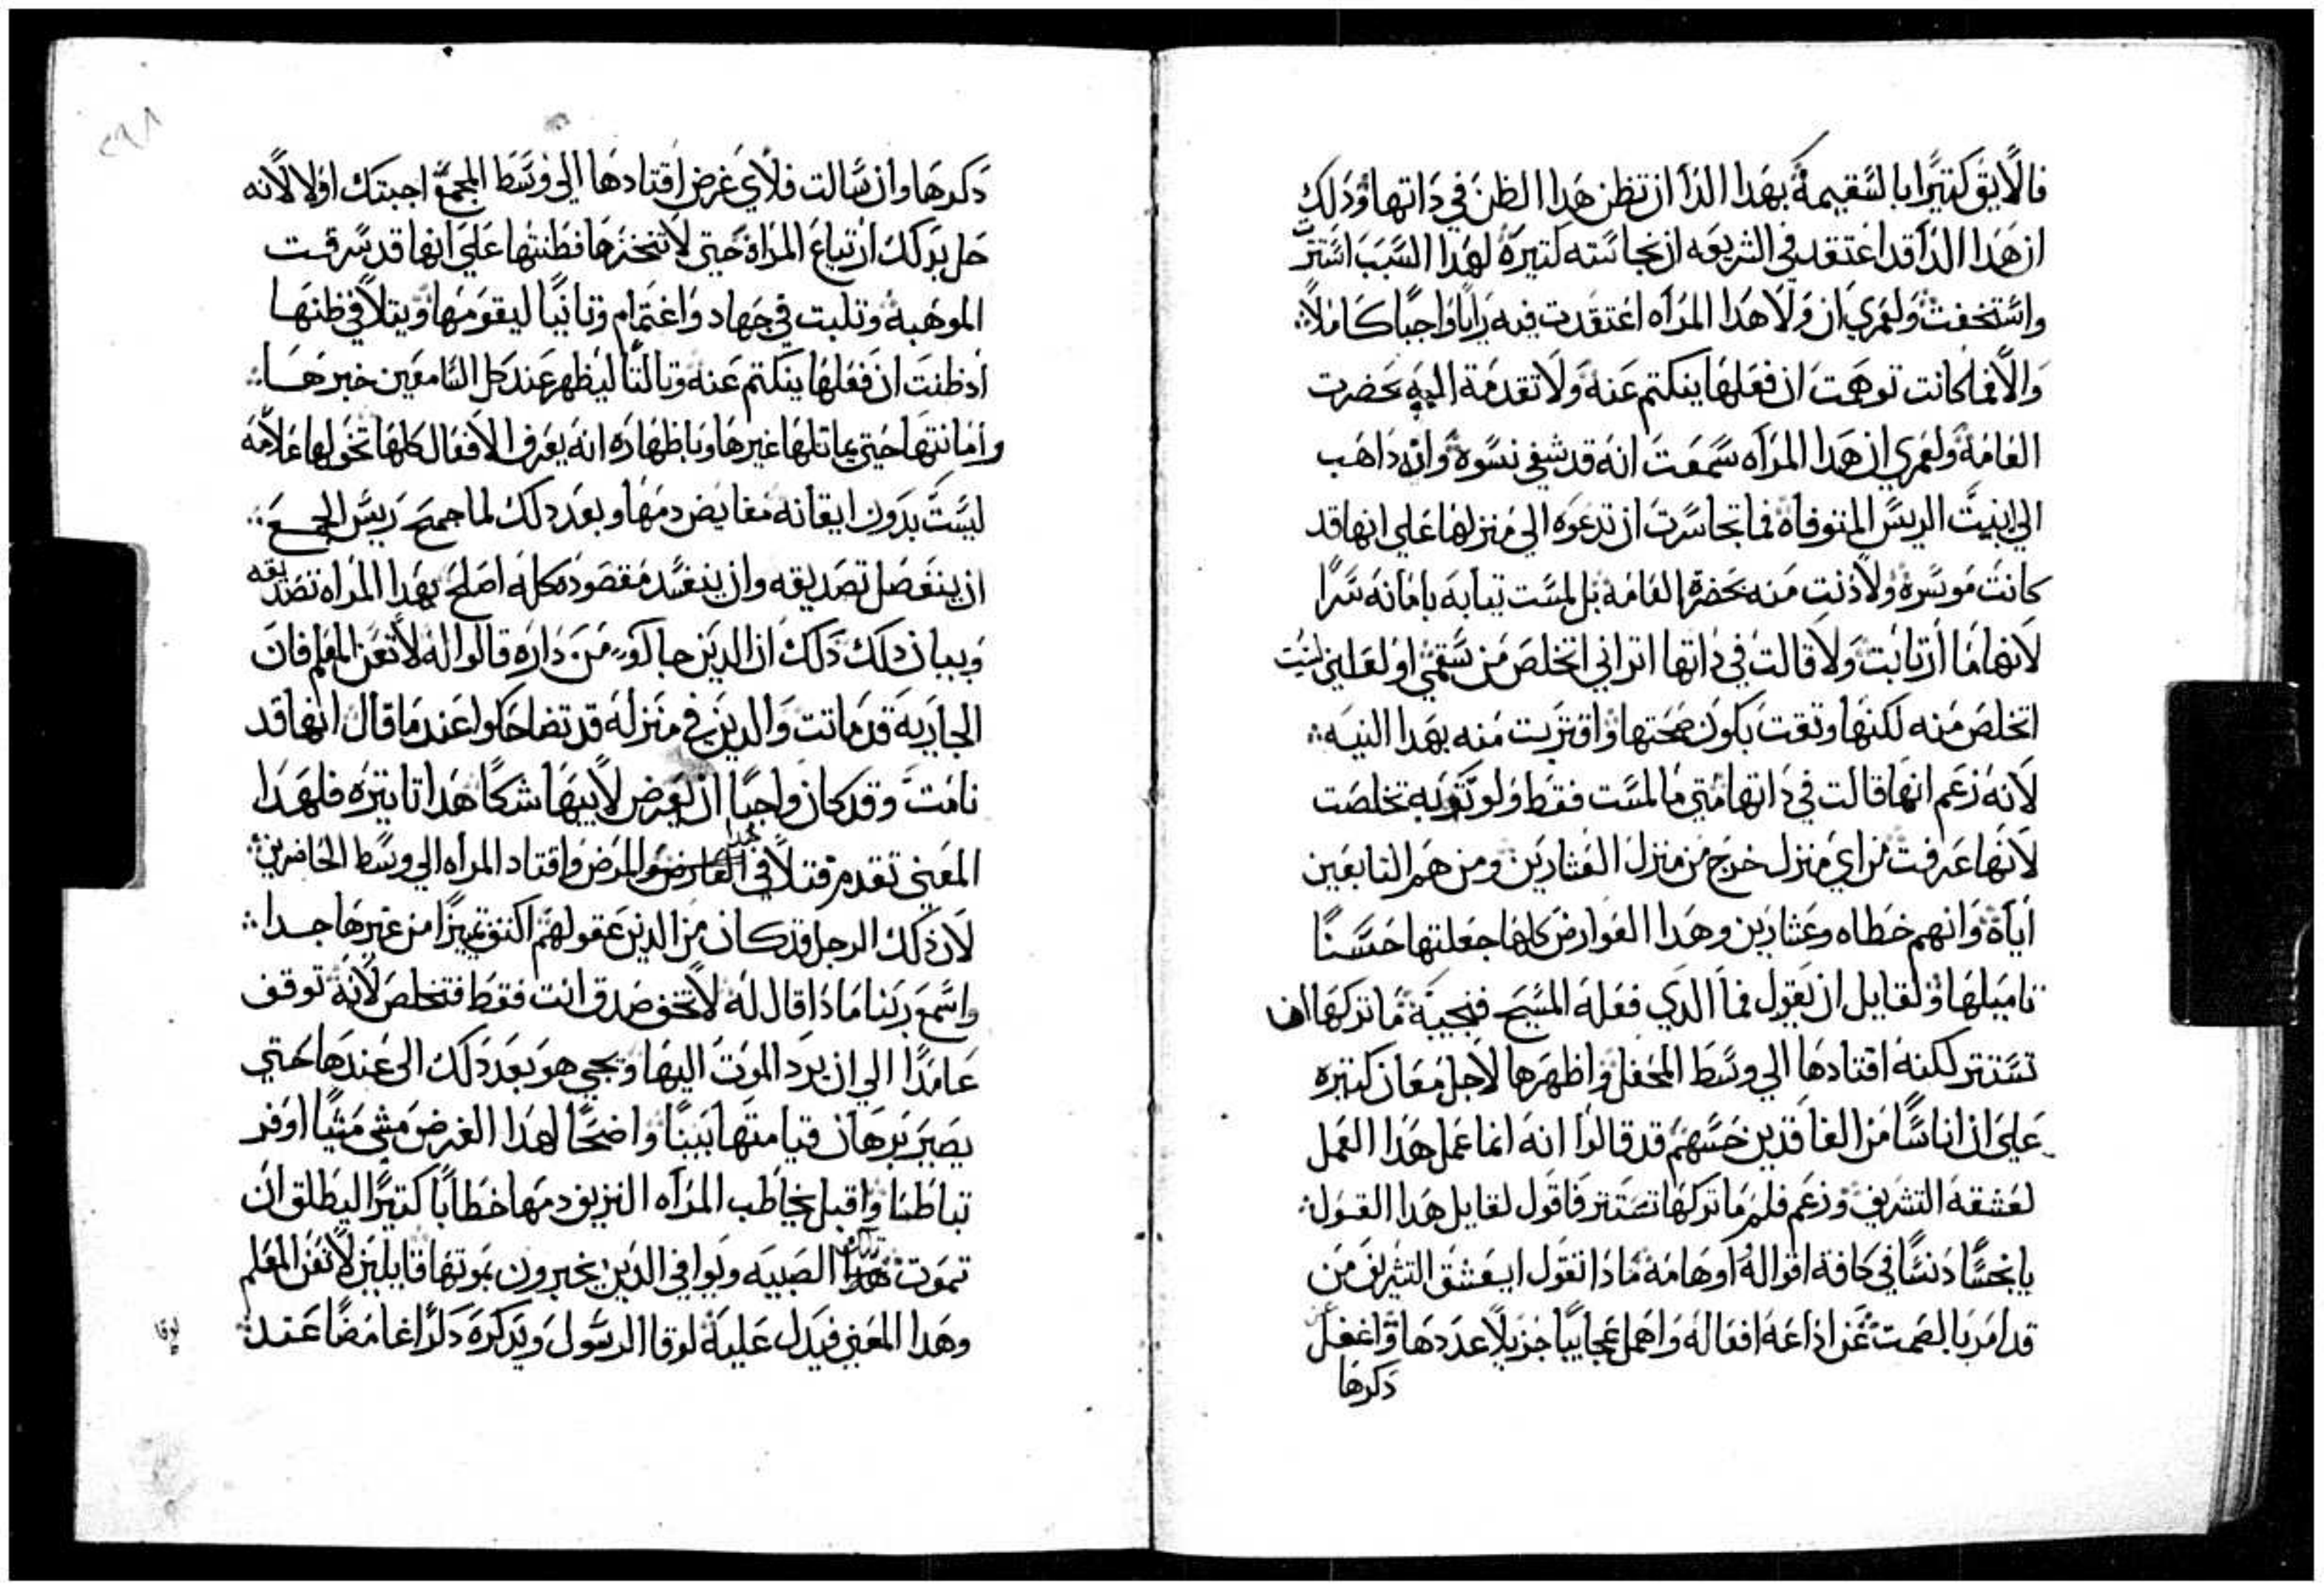 فالايق كتيرا بالسقيمة بهدا الدا ان تظن هدا الظن في داتها ودلك
ان هدا الدا قد اعتقد في الشريعه ان نجاسته كتيرة لهدا السبب استترت
واستخفت ولعمري ان ولا هدا المراه اعتقدت فيه رايا واجبا كاملا
والا فما كانت توهمت ان فعلها ينكتم عنه ولا تقدمة اليه بحضرت
العامة ولعمري ان هدا المراه سمعت انه قد شفي نسوة وانه داهب
الي ابنيت الريس المتوفاه فما تجاسرت ان تدعوه الي منزلها علي انها قد
كانت موسرة ولا دنت منه بحضرة العامة بل لمست تيابه بامانه سرا
لانها ما ارتابت ولا قالت في داتها اتراني اتخلص من سقمي او لعلني لست
اتخلص منه لكنها وتقت بكون صحتها واقتربت منه بهدا النيه
لانه زعم انها قالت في داتها متي ما لمست فقط ولو توبه تخلصت
لانها عرفت من اي منزل خرج من منزل العشارين ومن هم التابعين
اياه وانهم خطاه وعشارين وهدا العوارض كلها جعلتها حسنا
تاميلها ولقايل ان يقول فما الدي فعله المسيح فنجيبة ما تركها ان
تستتر لكنه اقتادها الي وسط المحفل واظهرها لاجل معان كتيره
علي ان اناسا من الفاقدين حسهم قد قالوا انه انما عمل هدا العمل
لعشقه التشريف وزعم فلم ما تركها تستتر فاقول لقايل هدا القول
يا نجسا دنسا في كافة اقواله اوهامة مادا تقول ايعشق التشريف من
قد امر بالصمت عن اداعة افعاله واهمل عجايبا جزيلا عددها واغفل
دكرها
٢٩٨
دكرها وان سالت فلاي غرض اقتادها الي وسط المجمع اجبتك اولا لانه
حل بدلك ارتياع المراة حتي لا تنخزها فطنتها علي انها قد سرقت
الموهبة وتلبت في جهاد واغتمام وتانيا ليقومها ويتلافي ظنها
اد ظنت ان فعلها ينكتم عنه وتالتا ليظهر عند كل السامعين خبرها
وامانتها حتي يماتلها غيرها وباظهاره انه يعرف الافعال كلها تخولها علامة
ليست بدون ايقانه مغايض دمها وبعد دلك لما جمح ريس الجمع
ان ينفصل تصديقه وان ينفسد مقصوده كله اصلح بهدا المراه تصديقه
وبيان دلك دلك ان الدين جاكوه من داره قالوا له لا تعن المعلم فان
الجارية قد ماتت والدين في منزله قد تضاحكوا عند ما قال انها قد
نامت وقد كان واجبا ان يعرض لابيها شكا هدا تاتيره فلهدا
المعني تقدم قتلافي العارض والمرض واقتاد المراه الي وسط الحاضرين
لان دلك الرجل قد كان من الدين عقولهم اكتف تميزا من غيرها جدا
واسمع ربنا مادا قال له لا تخف صدق انت فقط فتخلص لانه توقف
عامدا الي ان يرد الموت اليها ويجي هو بعد دلك الي عندها حتي
يصير برهان قيامتها بينا واضحا لهدا الغرض مشي مشيا اوفر
تباطئا واقبل يخاطب المراه النزيف دمها خطابا كتيرا ليطلق ان
تموت الصبيه ويوافي الدين يخبرون بموتها قايلين لا تعن المعلم
وهدا المعني فيدل علية لوقا الرسول ويدكره دكرا غامضا عند
لوقا